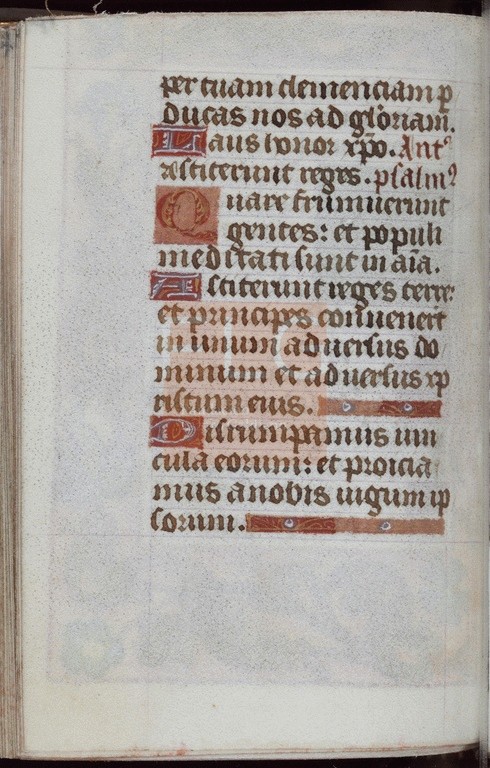 per tuam clemenciam p̄
ducas nos ad gloriam.
Laus honor xp̄o. Antꝰ
Astiterunt reges. psalmꝰ
Quare fremuerunt
gentes: et populi
meditati sunt in aīa.
Astiterunt reges terre:
et principes conuenert̄
in unum aduersus do
minum et aduersus xp̄
ristum eius.
Dirrumpamus uin
cula eorum: et proicia
mus a nobis iugum ip
sorum.